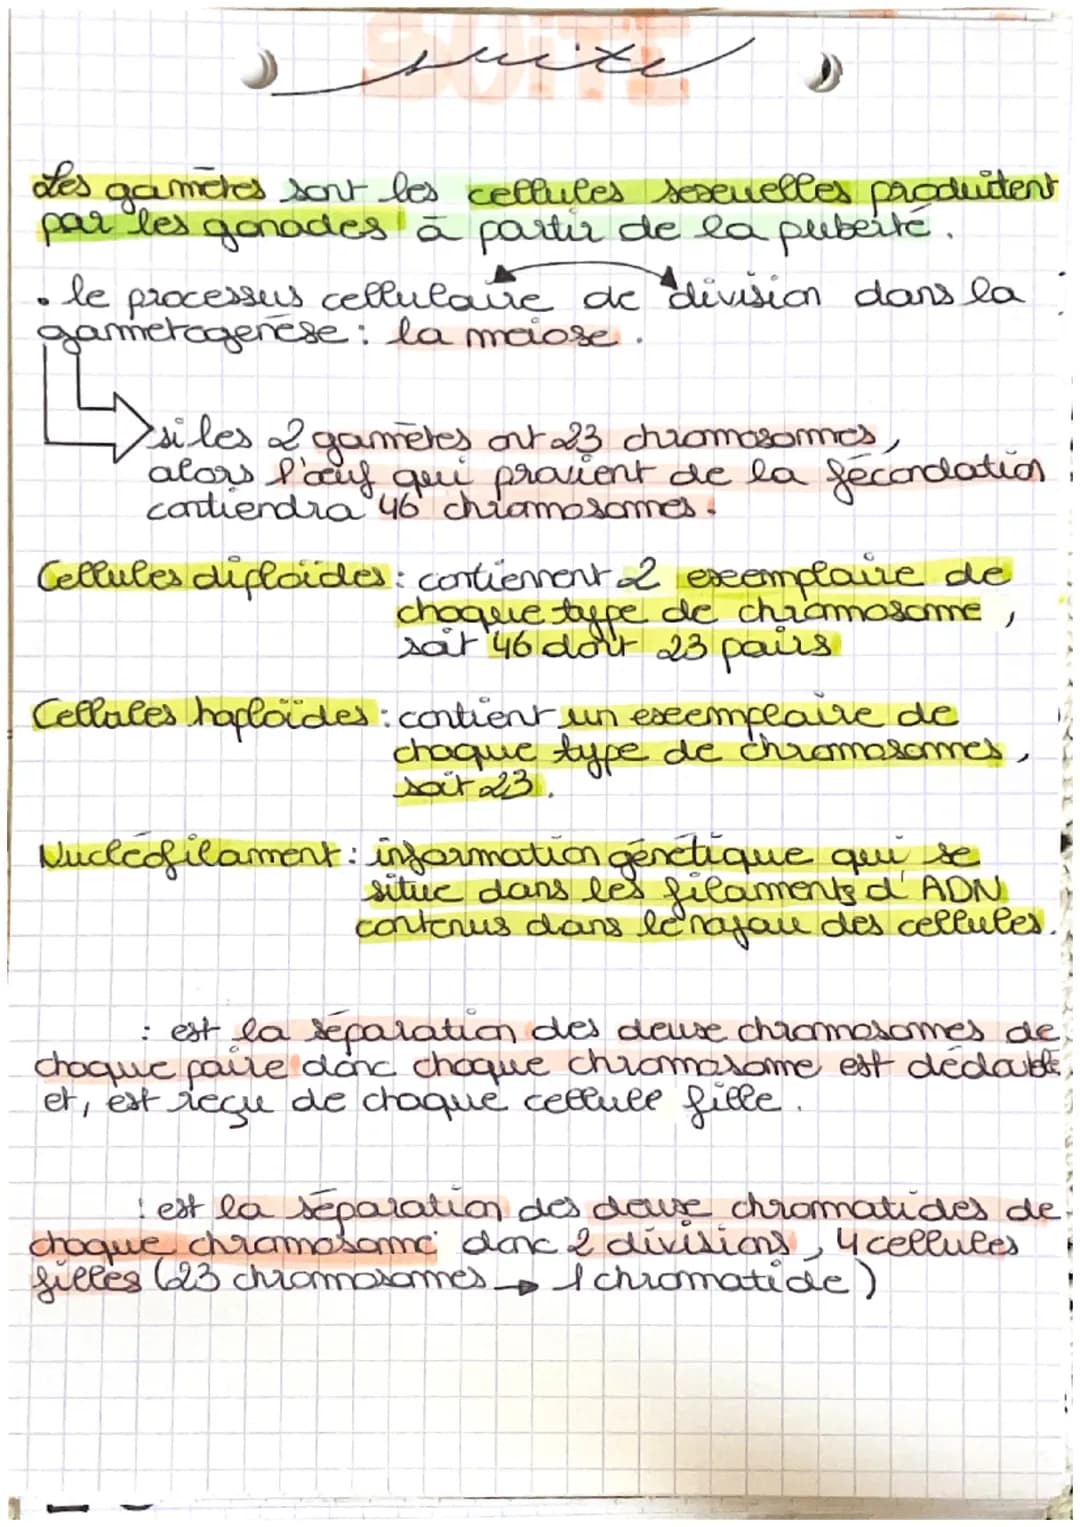 suite
Les gamètes sont les cellules sexuelles produitent
par les gonades à partir de la puberté.
• le processus cellulaire de division dans la
gamétogenèse : la meiose.
si les 2 gamètes ont 23 chromosomes,
alors l'œuf qui provient de la fécondation
contiendra 46 chromosomes.
Cellules diploïdes : contiennent 2 exemplaire de
chaque type de chromosome,
soit 46 dont 23 pairs
Cellules haploïdes : contient un exemplaire de
chaque type de chromosomes,
soit 23.
Nucléofilament : information génétique qui se
situe dans les filaments d'ADN
contenus dans le noyau des cellules.
: est la séparation des deux chromosomes de
chaque paire donc chaque chromosome est dédouble
et, est reçu de chaque cellule fille.
: est la séparation des deux chromatides de
chaque chromosome donc 2 divisions, 4 cellules
filles (23 chromosomes → 1 chromatide)